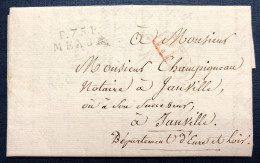 P.75.P.
MEAUX
À Monsieur
Monsieur Champigneau
Notaire à Janville,
ou à son Successeur,
à Janville.
Département d'Eure et Loir.